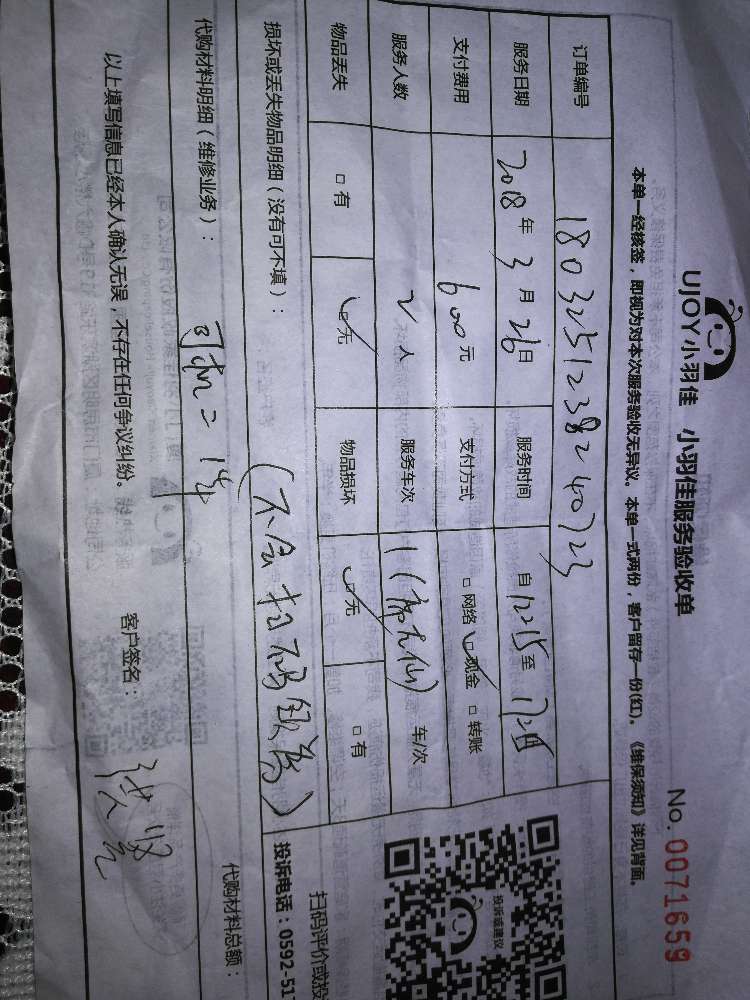 UJOY小羽佳 小羽佳服务验收单
No. 0071659
本单一经核签，即视为对本次服务验收无异议。本单一式两份，客户留存一份(红)。《维保须知》详见背面。
订单编号 1803251238240723
服务日期 2018年3月26日 服务时间 自12:15至
支付费用 600元 支付方式 □网络 ☑现金 □转账
服务人数 2人 服务车次 1 车/次
物品丢失 □有 ☑无 物品损坏 ☑无 □有
损坏或丢失物品明细（没有可不填）：
(不会扫码
代购材料明细（维修业务）：
司机二
代购材料总额：
以上填写信息已经本人确认无误，不存在任何争议纠纷。
客户签名：
投诉或建议
扫码评价或投
投诉电话：0592-517